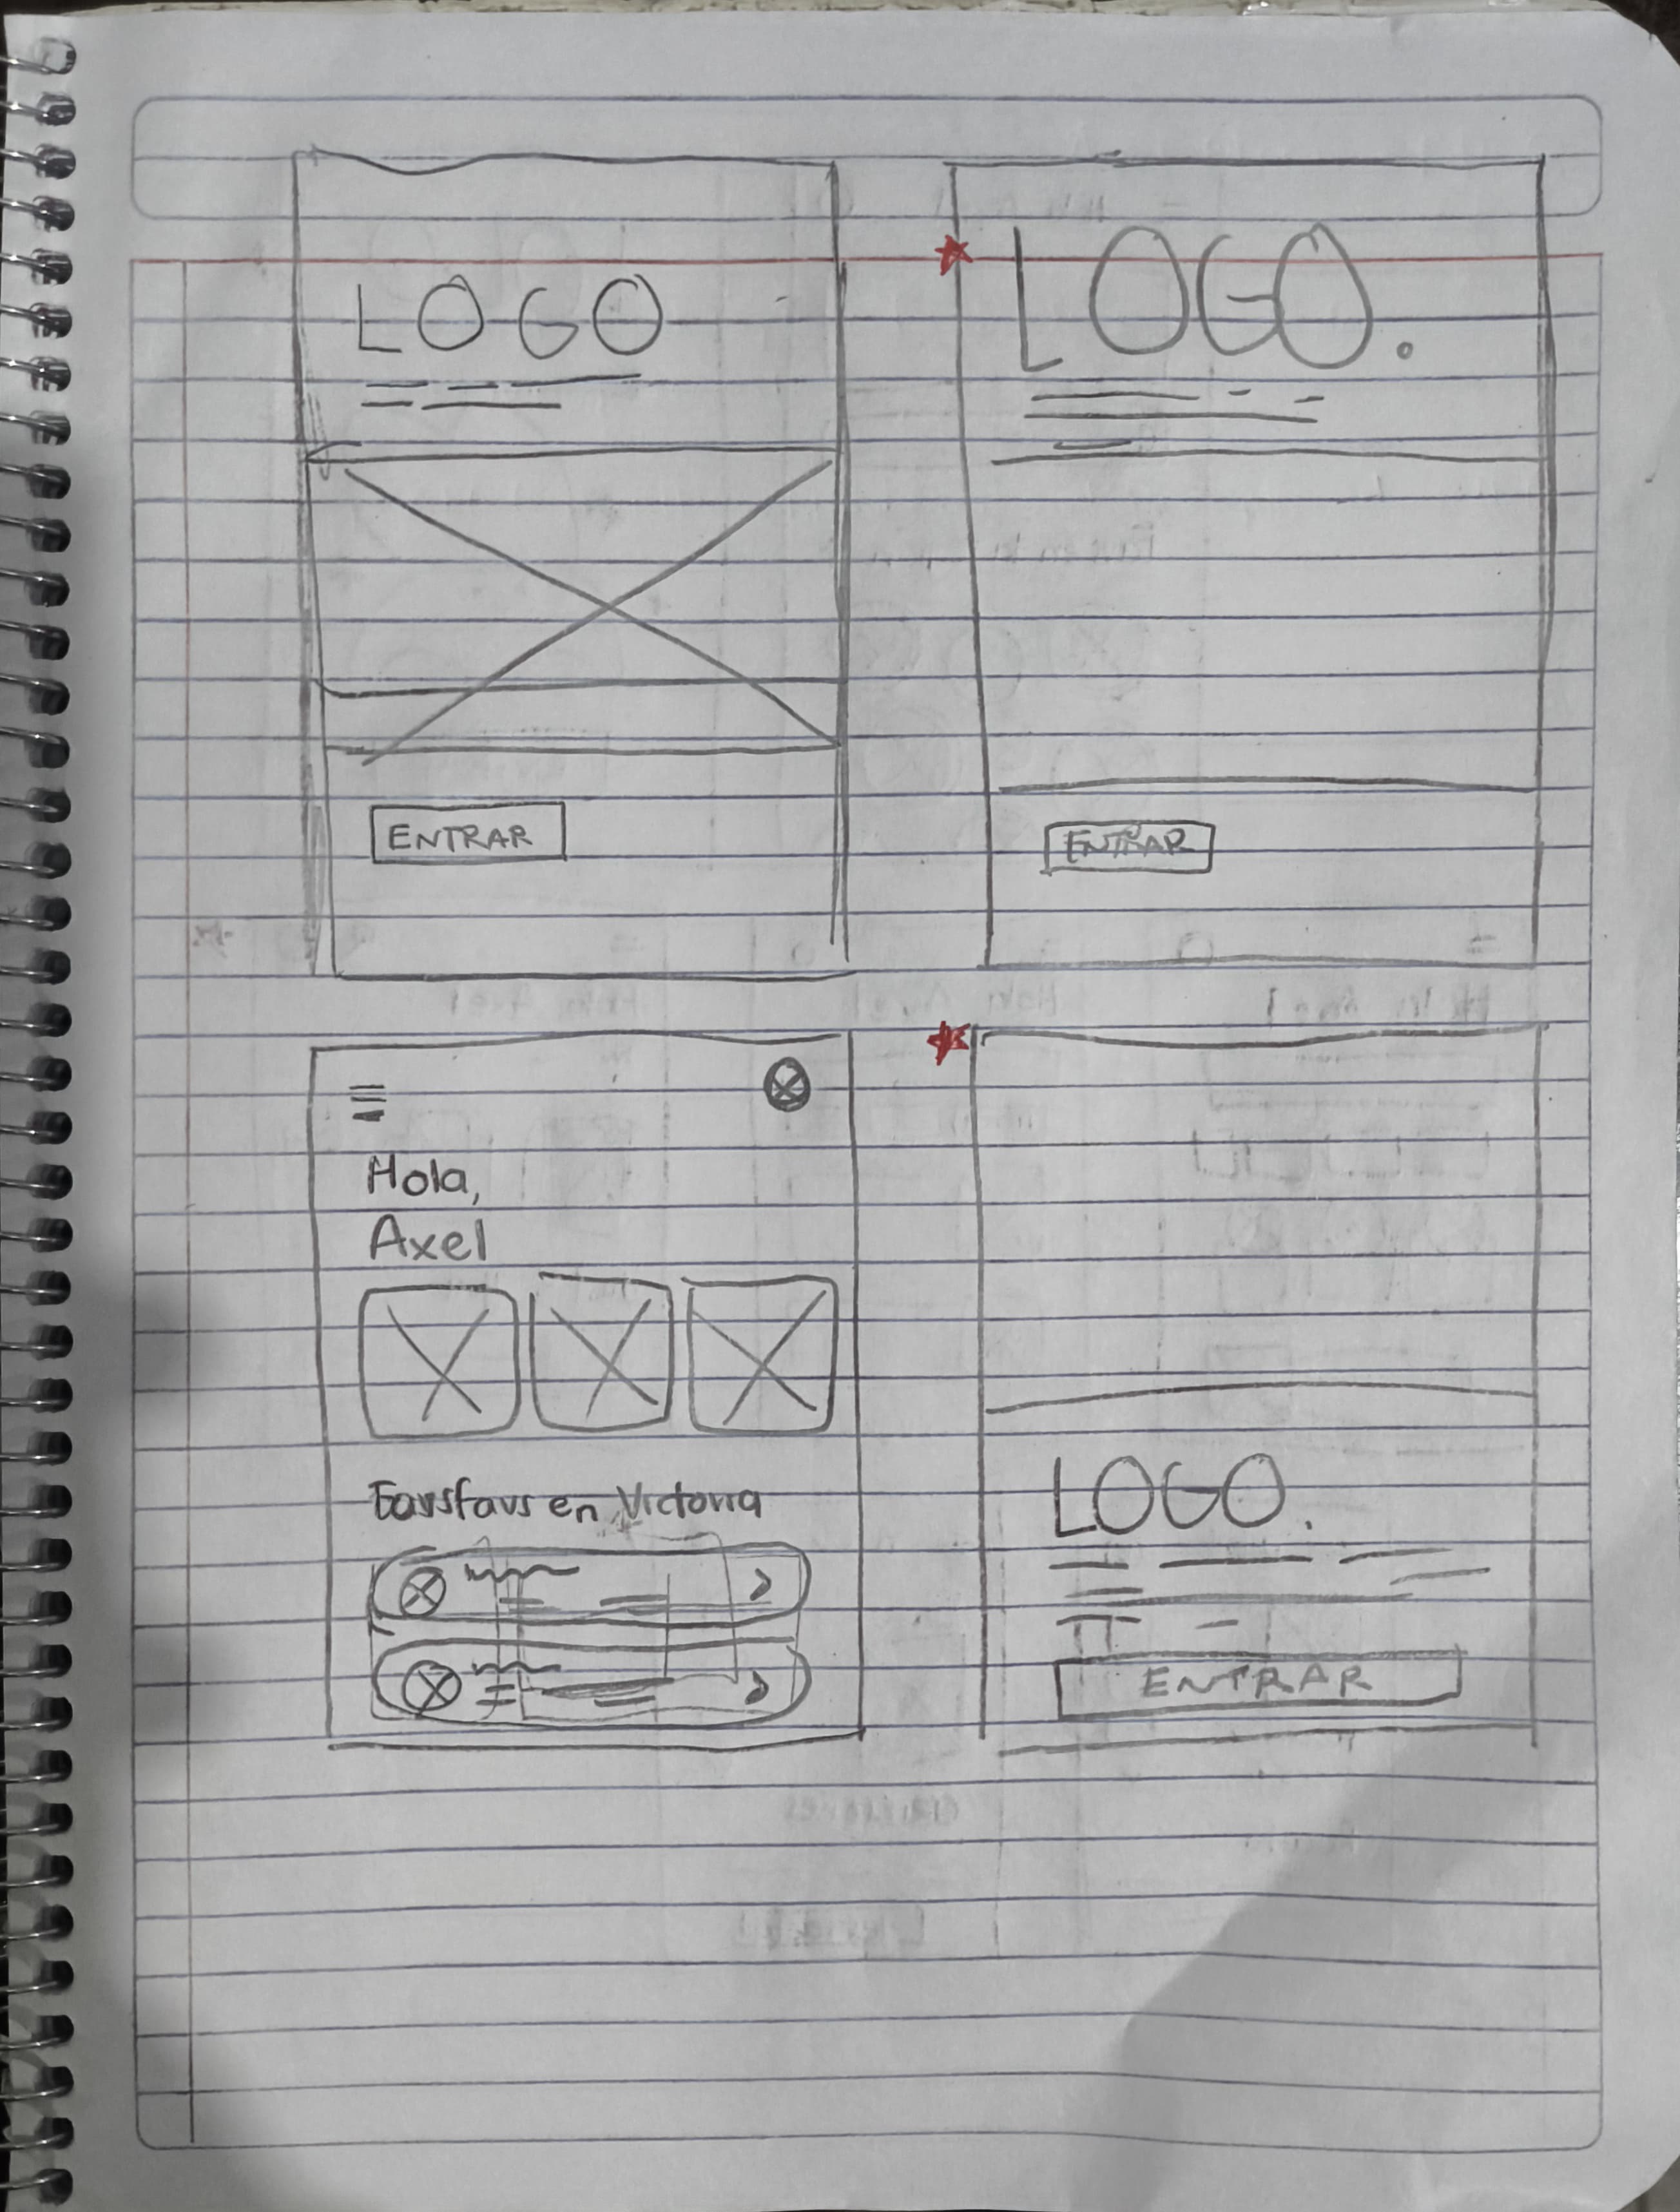 LOGO
ENTRAR
LOGO.
ENTRAR
Hola,
Axel
Favsfavs en Victoria
LOGO.
ENTRAR